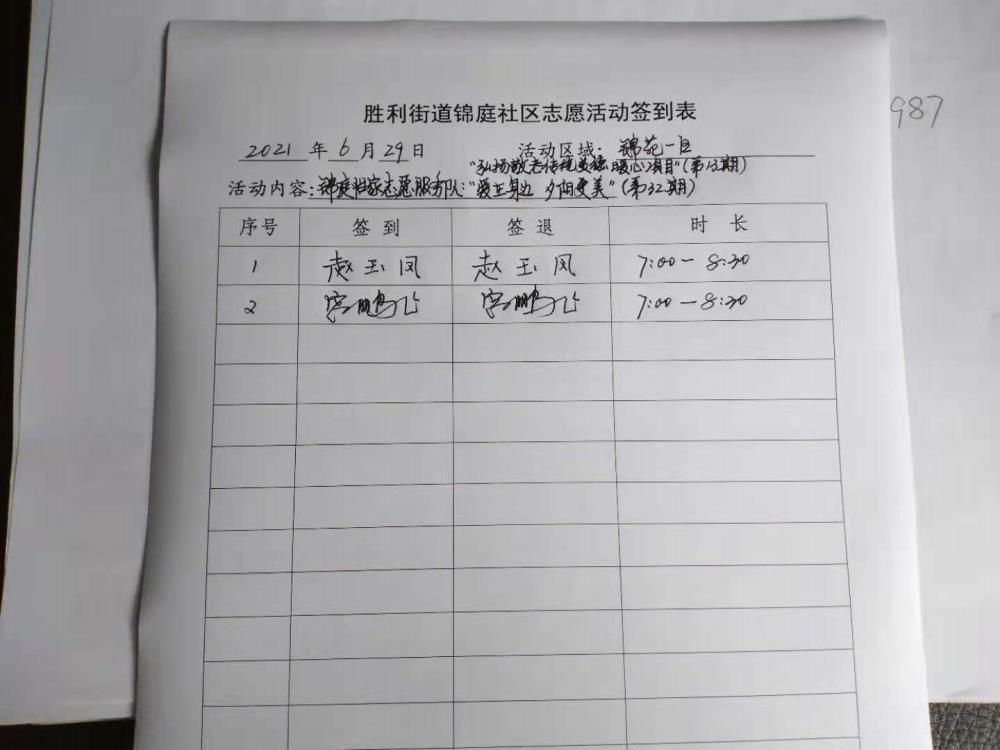 胜利街道锦庭社区志愿活动签到表
987
2021 年 6 月 29 日 活动区域: 锦苑一区
"弘扬敬老传统美德 暖心项目"(第12期)
活动内容: 锦庭社家志愿服务队:"爱在身边 夕阳更美"(第32期)
序号 签到 签退 时长
1 赵玉凤 赵玉凤 7:00-8:30
2 宫鹏飞 宫鹏飞 7:00-8:30